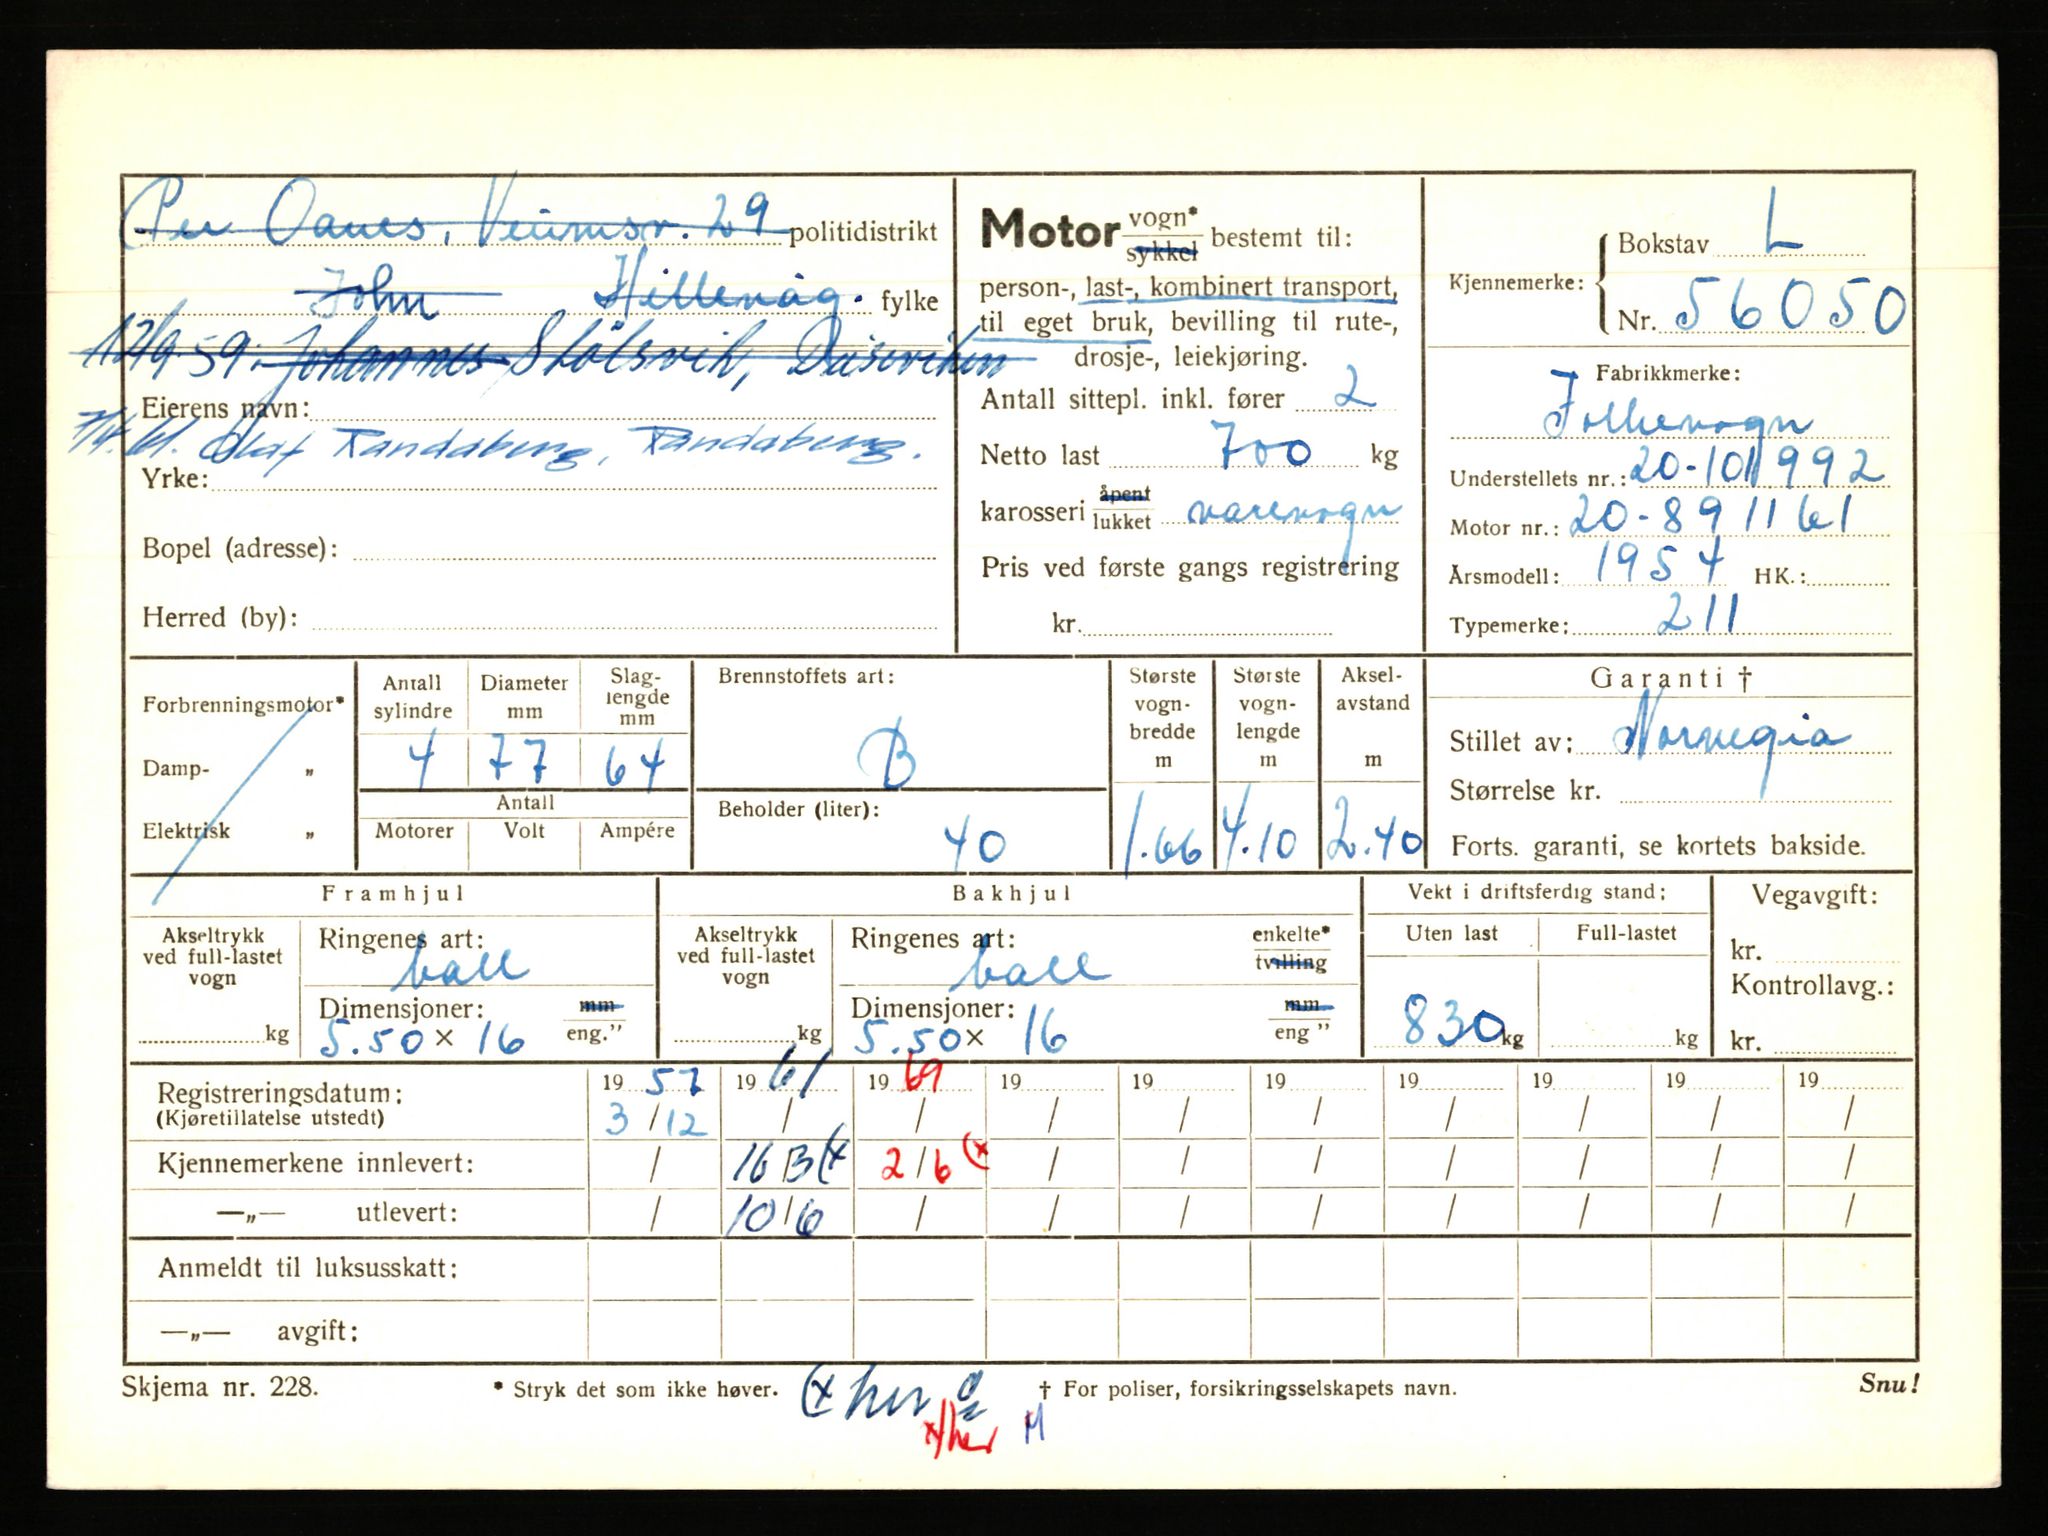 Per Oanes, 29 politidistrikt
John Hillevåg. fylke
12/9.59. Johannes Stølsvik, Duseviken
Eierens navn:
7/4.61. Olaf Randaberg, Randaberg.
Yrke:
Bopel (adresse):
Herred (by):
Motor vogn* sykkel bestemt til:
person-, last-, kombinert transport,
til eget bruk, bevilling til rute-,
drosje-, leiekjøring.
Antall sittepl. inkl. fører 2
Netto last 700 kg
karosseri åpent lukket varevogn
Pris ved første gangs registrering
kr.
Kjennemerke: Bokstav L
Nr. 56050
Fabrikkmerke:
Folkevogn
Understellets nr.: 20-101992
Motor nr.: 20-891161
Årsmodell: 1954 HK.:
Typemerke: 211
Forbrenningsmotor*
Damp- „
Elektrisk „
Antall sylindre 4
Diameter mm 77
Slag-lengde mm 64
Antall
Motorer Volt Ampére
Brennstoffets art:
B
Beholder (liter):
40
Største vogn-bredde m 1.66
Største vogn-lengde m 4.10
Aksel-avstand m 2.40
Garanti †
Stillet av: Norwegia
Størrelse kr.
Forts. garanti, se kortets bakside.
Framhjul
Akseltrykk ved full-lastet vogn kg
Ringenes art:
ball
Dimensjoner: mm
5.50 × 16 eng."
Bakhjul
Akseltrykk ved full-lastet vogn kg
Ringenes art: enkelte* tvilling
ball
Dimensjoner: mm
5.50 × 16 eng "
Vekt i driftsferdig stand:
Uten last Full-lastet
830 kg kg
Vegavgift:
kr.
Kontrollavg.:
kr.
Registreringsdatum: 19 57 19 61 19 69 19 19 19 19 19 19 19
(Kjøretillatelse utstedt) 3/12 / / / / / / / / /
Kjennemerkene innlevert: / 16/3 (x 2/6 (x / / / / / / /
—„— utlevert: / 10/6 / / / / / / / /
Anmeldt til luksusskatt:
—„— avgift:
Skjema nr. 228. * Stryk det som ikke høver. (x her † For poliser, forsikringsselskapets navn. Snu!
x/her M